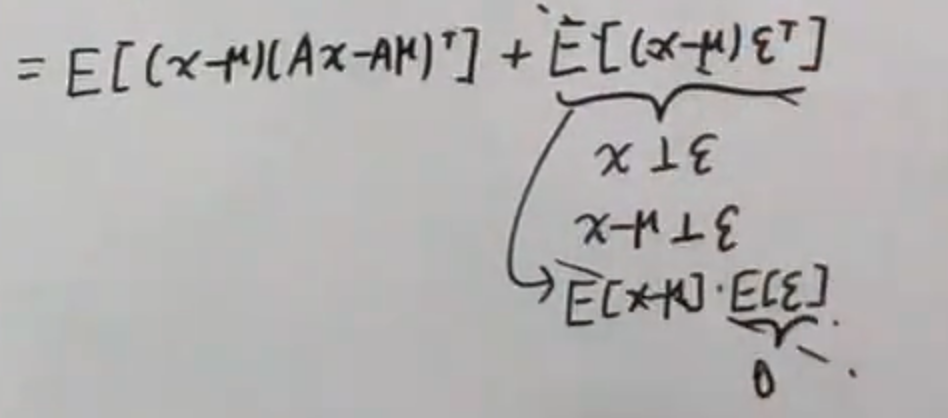 = E[(x-μ)(Ax-Aμ)ᵀ] + E[(x-μ)εᵀ]
x ⊥ ε
x-μ ⊥ ε
E[x-μ]·E[ε]
0